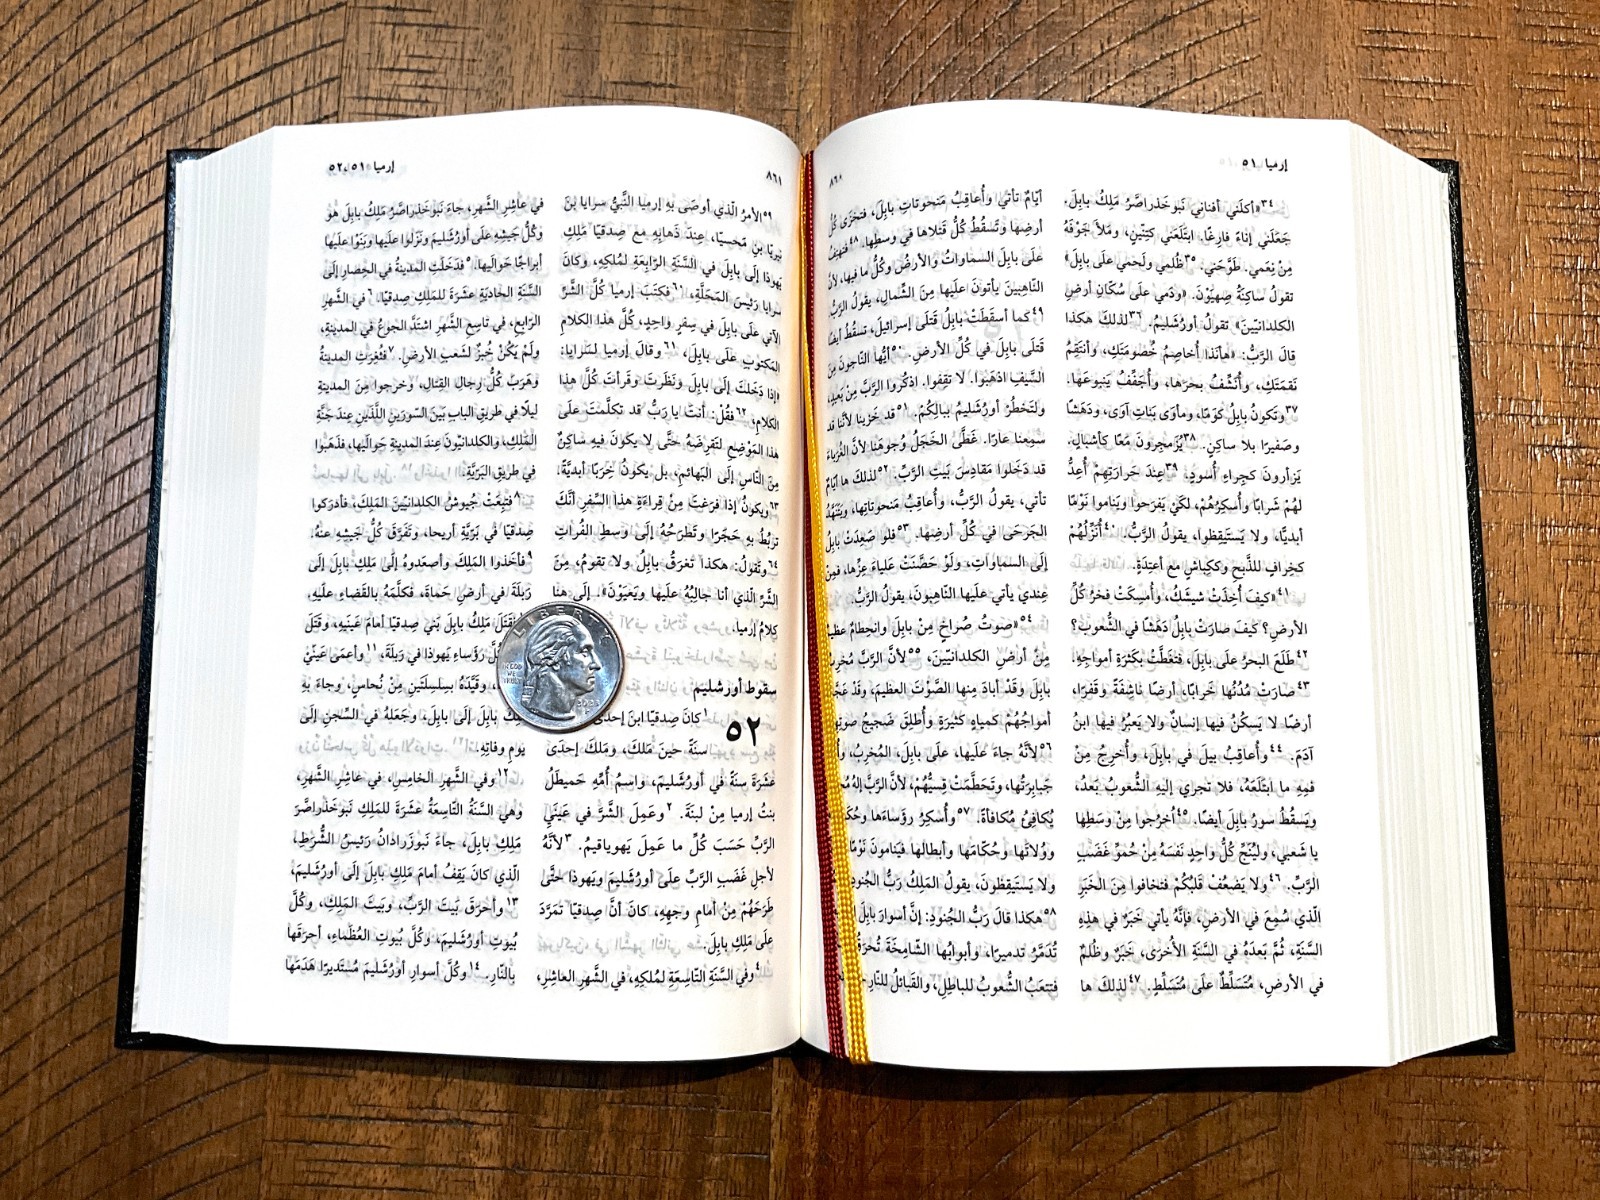 إرميا ٥١
٨٦٠
٣٤«أكَلَني أفناني نَبوخَذراصَّرُ مَلِكُ بابِلَ.
جَعَلَني إناءً فارِغًا. ابتَلَعَني كتِنّينٍ، ومَلأ جَوْفَهُ
مِنْ نِعَمي. طَوَّحَني. ٣٥ظُلمي ولَحمي علَى بابِلَ»
تقولُ ساكِنَةُ صِهيَوْنَ. «ودَمي علَى سُكّانِ أرضِ
الكلدانيّينَ» تقولُ أورُشَليمُ. ٣٦لذلكَ هكذا
قالَ الرَّبُّ: «هأنَذا أُخاصِمُ خُصومَتَكِ، وأنتَقِمُ
نَقمَتَكِ، وأُنَشِّفُ بحرَها، وأُجَفِّفُ يَنبوعَها.
٣٧وتَكونُ بابِلُ كوَمًا، ومأوَى بَناتِ آوَى، ودَهَشًا
وصَفيرًا بلا ساكِنٍ. ٣٨يُزَمجِرونَ مَعًا كأشبالٍ.
يَزأرونَ كجِراءِ أُسودٍ. ٣٩عِندَ حَرارَتِهِمْ أُعِدُّ
لهُمْ شَرابًا وأُسكِرُهُمْ، لكَيْ يَفرَحوا ويَناموا نَوْمًا
أبديًّا، ولا يَستَيقِظوا، يقولُ الرَّبُّ. ٤٠أُنَزِّلُهُمْ
كخِرافٍ للذَّبحِ وككِباشٍ مع أعتِدَةٍ.
٤١«كيفَ أُخِذَتْ شيشَكُ، وأُمسِكَتْ فخرُ كُلِّ
الأرضِ؟ كيفَ صارَتْ بابِلُ دَهَشًا في الشُّعوبِ؟
٤٢طَلَعَ البحرُ علَى بابِلَ، فتغَطَّتْ بكَثرَةِ أمواجِهِ.
٤٣صارَتْ مُدُنُها خَرابًا، أرضًا ناشِفَةً وقَفرًا،
أرضًا لا يَسكُنُ فيها إنسانٌ ولا يَعبُرُ فيها ابنُ
آدَمَ. ٤٤وأُعاقِبُ بيلَ في بابِلَ، وأُخرِجُ مِنْ
فمِهِ ما ابتَلَعَهُ، فلا تجري إليهِ الشُّعوبُ بَعدُ،
ويَسقُطُ سورُ بابِلَ أيضًا. ٤٥اُخرُجوا مِنْ وسَطِها
يا شَعبي، وليُنَجِّ كُلُّ واحِدٍ نَفسَهُ مِنْ حُموِّ غَضَبِ
الرَّبِّ. ٤٦ولا يَضعُفْ قَلبُكُمْ فتخافوا مِنَ الخَبَرِ
الّذي سُمِعَ في الأرضِ، فإنَّهُ يأتي خَبَرٌ في هذِهِ
السَّنَةِ، ثُمَّ بَعدَهُ في السَّنَةِ الأُخرَى، خَبَرٌ وظُلمٌ
في الأرضِ، مُتَسَلِّطٌ علَى مُتَسَلِّطٍ. ٤٧لذلكَ ها
أيّامٌ تأتي وأُعاقِبُ مَنحوتاتِ بابِلَ، فتخزَى كُلُّ
أرضِها وتَسقُطُ كُلُّ قَتلاها في وسطِها. ٤٨فتهتِفُ
علَى بابِلَ السماواتُ والأرضُ وكُلُّ ما فيها، لأنَّ
النّاهِبينَ يأتونَ علَيها مِنَ الشِّمالِ، يقولُ الرَّبُّ.
٤٩كما أسقَطَتْ بابِلُ قَتلَى إسرائيلَ، تسقُطُ أيضًا
قَتلَى بابِلَ في كُلِّ الأرضِ. ٥٠أيُّها النّاجونَ مِنَ
السَّيفِ اذهَبوا. لا تقِفوا. اذكُروا الرَّبَّ مِنْ بَعيدٍ،
ولتَخطُرْ أورُشَليمُ ببالِكُمْ. ٥١قد خَزينا لأنَّنا قد
سمِعنا عارًا. غَطَّى الخَجَلُ وُجوهَنا لأنَّ الغُرَباءَ
قد دَخَلوا مَقادِسَ بَيتِ الرَّبِّ. ٥٢لذلكَ ها أيّامٌ
تأتي، يقولُ الرَّبُّ، وأُعاقِبُ مَنحوتاتِها، ويَتَنَهَّدُ
الجَرحَى في كُلِّ أرضِها. ٥٣فلو صَعِدَتْ بابِلُ
إلى السماواتِ، ولَوْ حَصَّنَتْ علياءَ عِزِّها، فمِنْ
عِندي يأتي علَيها النّاهِبونَ، يقولُ الرَّبُّ.
٥٤«صوتُ صُراخٍ مِنْ بابِلَ وانحِطامٌ عظيمٌ
مِنْ أرضِ الكلدانيّينَ، ٥٥لأنَّ الرَّبَّ مُخرِبٌ
بابِلَ وقَدْ أبادَ مِنها الصَّوْتَ العظيمَ، وقَدْ عَجَّتْ
أمواجُهُمْ كمياهٍ كثيرَةٍ وأُطلِقَ ضَجيجُ صوتِهِمْ.
٥٦لأنَّهُ جاءَ علَيها، علَى بابِلَ، المُخرِبُ،
جَبابِرَتُها، وتَحَطَّمَتْ قِسيُّهُمْ، لأنَّ الرَّبَّ إلهُ
يُكافِئُ مُكافأةً. ٥٧وأُسكِرُ رؤَساءَها
ووُلاتَها وحُكّامَها وأبطالَها فيَنامونَ نَوْمًا
ولا يَستَيقِظونَ، يقولُ المَلِكُ رَبُّ الجُنودِ
٥٨هكذا قالَ رَبُّ الجُنودِ: إنَّ أسوارَ بابِلَ
تُدَمَّرُ تدميرًا، وأبوابُها الشّامِخَةَ تُحرَقُ
فتتعَبُ الشُّعوبُ للباطِلِ، والقَبائلُ للنّارِ
٨٦١
إرميا ٥١، ٥٢
٥٩الأمرُ الّذي أوصَى بهِ إرميا النَّبيُّ سرايا بنَ
نيريّا بنِ مَحسيّا، عِندَ ذَهابِهِ مع صِدقيّا مَلِكِ
يَهوذا إلى بابِلَ في السَّنَةِ الرّابِعَةِ لمُلكِهِ، وكانَ
سرايا رَئيسَ المَحَلَّةِ، ٦٠فكتَبَ إرميا كُلَّ الشَّرِّ
الآتي علَى بابِلَ في سِفرٍ واحِدٍ، كُلَّ هذا الكلامِ
المَكتوبِ علَى بابِلَ، ٦١وقالَ إرميا لسَرايا:
«إذا دَخَلتَ إلى بابِلَ ونَظَرتَ وقَرأتَ كُلَّ هذا
الكلامِ، ٦٢فقُلْ: أنتَ يا رَبُّ قد تكلَّمتَ علَى
هذا المَوْضِعِ لتَقرِضَهُ حتَّى لا يكونَ فيهِ ساكِنٌ
مِنَ النّاسِ إلى البَهائمِ، بل يكونُ خِرَبًا أبديَّةً.
٦٣ويكونُ إذا فرَغتَ مِنْ قراءَةِ هذا السِّفرِ أنَّكَ
تربُطُ بهِ حَجَرًا وتَطرَحُهُ إلى وسطِ الفُراتِ
٦٤وتَقولُ: هكذا تغرَقُ بابِلُ ولا تقومُ، مِنَ
الشَّرِّ الّذي أنا جالِبُهُ علَيها ويَعيَوْنَ». إلى هنا
كلامُ إرميا.
سقوط أورشليم
٥٢
١كانَ صِدقيّا ابنَ إحدَى
سنَةً حينَ مَلكَ، ومَلكَ إحدَى
عَشرَةَ سنَةً في أورُشَليمَ، واسمُ أُمِّهِ حَميطَلُ
بنتُ إرميا مِنْ لبنَةَ. ٢وعَمِلَ الشَّرَّ في عَينَيِ
الرَّبِّ حَسَبَ كُلِّ ما عَمِلَ يَهوياقيمُ. ٣لأنَّهُ
لأجلِ غَضَبِ الرَّبِّ علَى أورُشَليمَ ويَهوذا حتَّى
طَرَحَهُمْ مِنْ أمامِ وجهِهِ، كانَ أنَّ صِدقيّا تمَرَّدَ
علَى مَلِكِ بابِلَ.
٤وفي السَّنَةِ التّاسِعَةِ لمُلكِهِ، في الشَّهرِ العاشِرِ،
في عاشِرِ الشَّهرِ، جاءَ نَبوخَذراصَّرُ مَلِكُ بابِلَ هو
وكُلُّ جَيشِهِ علَى أورُشَليمَ ونَزَلوا علَيها وبَنَوْا علَيها
أبراجًا حَوالَيها. ٥فدَخَلَتِ المدينةُ في الحِصارِ إلى
السَّنَةِ الحاديَةِ عشَرَةَ للمَلِكِ صِدقيّا. ٦في الشَّهرِ
الرّابِعِ، في تاسِعِ الشَّهرِ اشتَدَّ الجوعُ في المدينةِ،
ولَمْ يَكُنْ خُبزٌ لشَعبِ الأرضِ. ٧فثُغِرَتِ المدينةُ
وهَرَبَ كُلُّ رِجالِ القِتالِ، وخرجوا مِنَ المدينةِ
ليلًا في طريقِ البابِ بَينَ السّورَينِ اللَّذَينِ عِندَ جَنَّةِ
المَلِكِ، والكلدانيّونَ عِندَ المدينةِ حَوالَيها، فذَهَبوا
في طريقِ البَرّيَّةِ.
٨فتبِعَتْ جُيوشُ الكلدانيّينَ المَلِكَ، فأدرَكوا
صِدقيّا في بَرّيَّةِ أريحا، وتَفَرَّقَ كُلُّ جَيشِهِ عنهُ.
٩فأخَذوا المَلِكَ وأصعَدوهُ إلى مَلِكِ بابِلَ إلى
رَبلَةَ في أرضِ حَماةَ، فكلَّمَهُ بالقَضاءِ علَيهِ.
فقَتَلَ مَلِكُ بابِلَ بَني صِدقيّا أمامَ عَينَيهِ، وقَتَلَ
كُلَّ رؤَساءِ يَهوذا في رَبلَةَ، ١١وأعمَى عَينَيْ
وقَيَّدَهُ بسِلسِلَتَينِ مِنْ نُحاسٍ، وجاءَ بهِ
مَلِكُ بابِلَ إلى بابِلَ، وجَعَلهُ في السِّجنِ إلى
يومِ وفاتِهِ.
١٢وفي الشَّهرِ الخامِسِ، في عاشِرِ الشَّهرِ،
وهي السَّنَةُ التّاسِعَةُ عشَرَةَ للمَلِكِ نَبوخَذراصَّرَ
مَلِكِ بابِلَ، جاءَ نَبوزَرادانُ رَئيسُ الشُّرَطِ،
الّذي كانَ يَقِفُ أمامَ مَلِكِ بابِلَ إلى أورُشَليمَ،
١٣وأحرَقَ بَيتَ الرَّبِّ، وبَيتَ المَلِكِ، وكُلَّ
بُيوتِ أورُشَليمَ، وكُلَّ بُيوتِ العُظَماءِ، أحرَقَها
بالنّارِ. ١٤وكُلَّ أسوارِ أورُشَليمَ مُستَديرًا هَدَمَها
LIBERTY
IN GOD
WE
TRUST